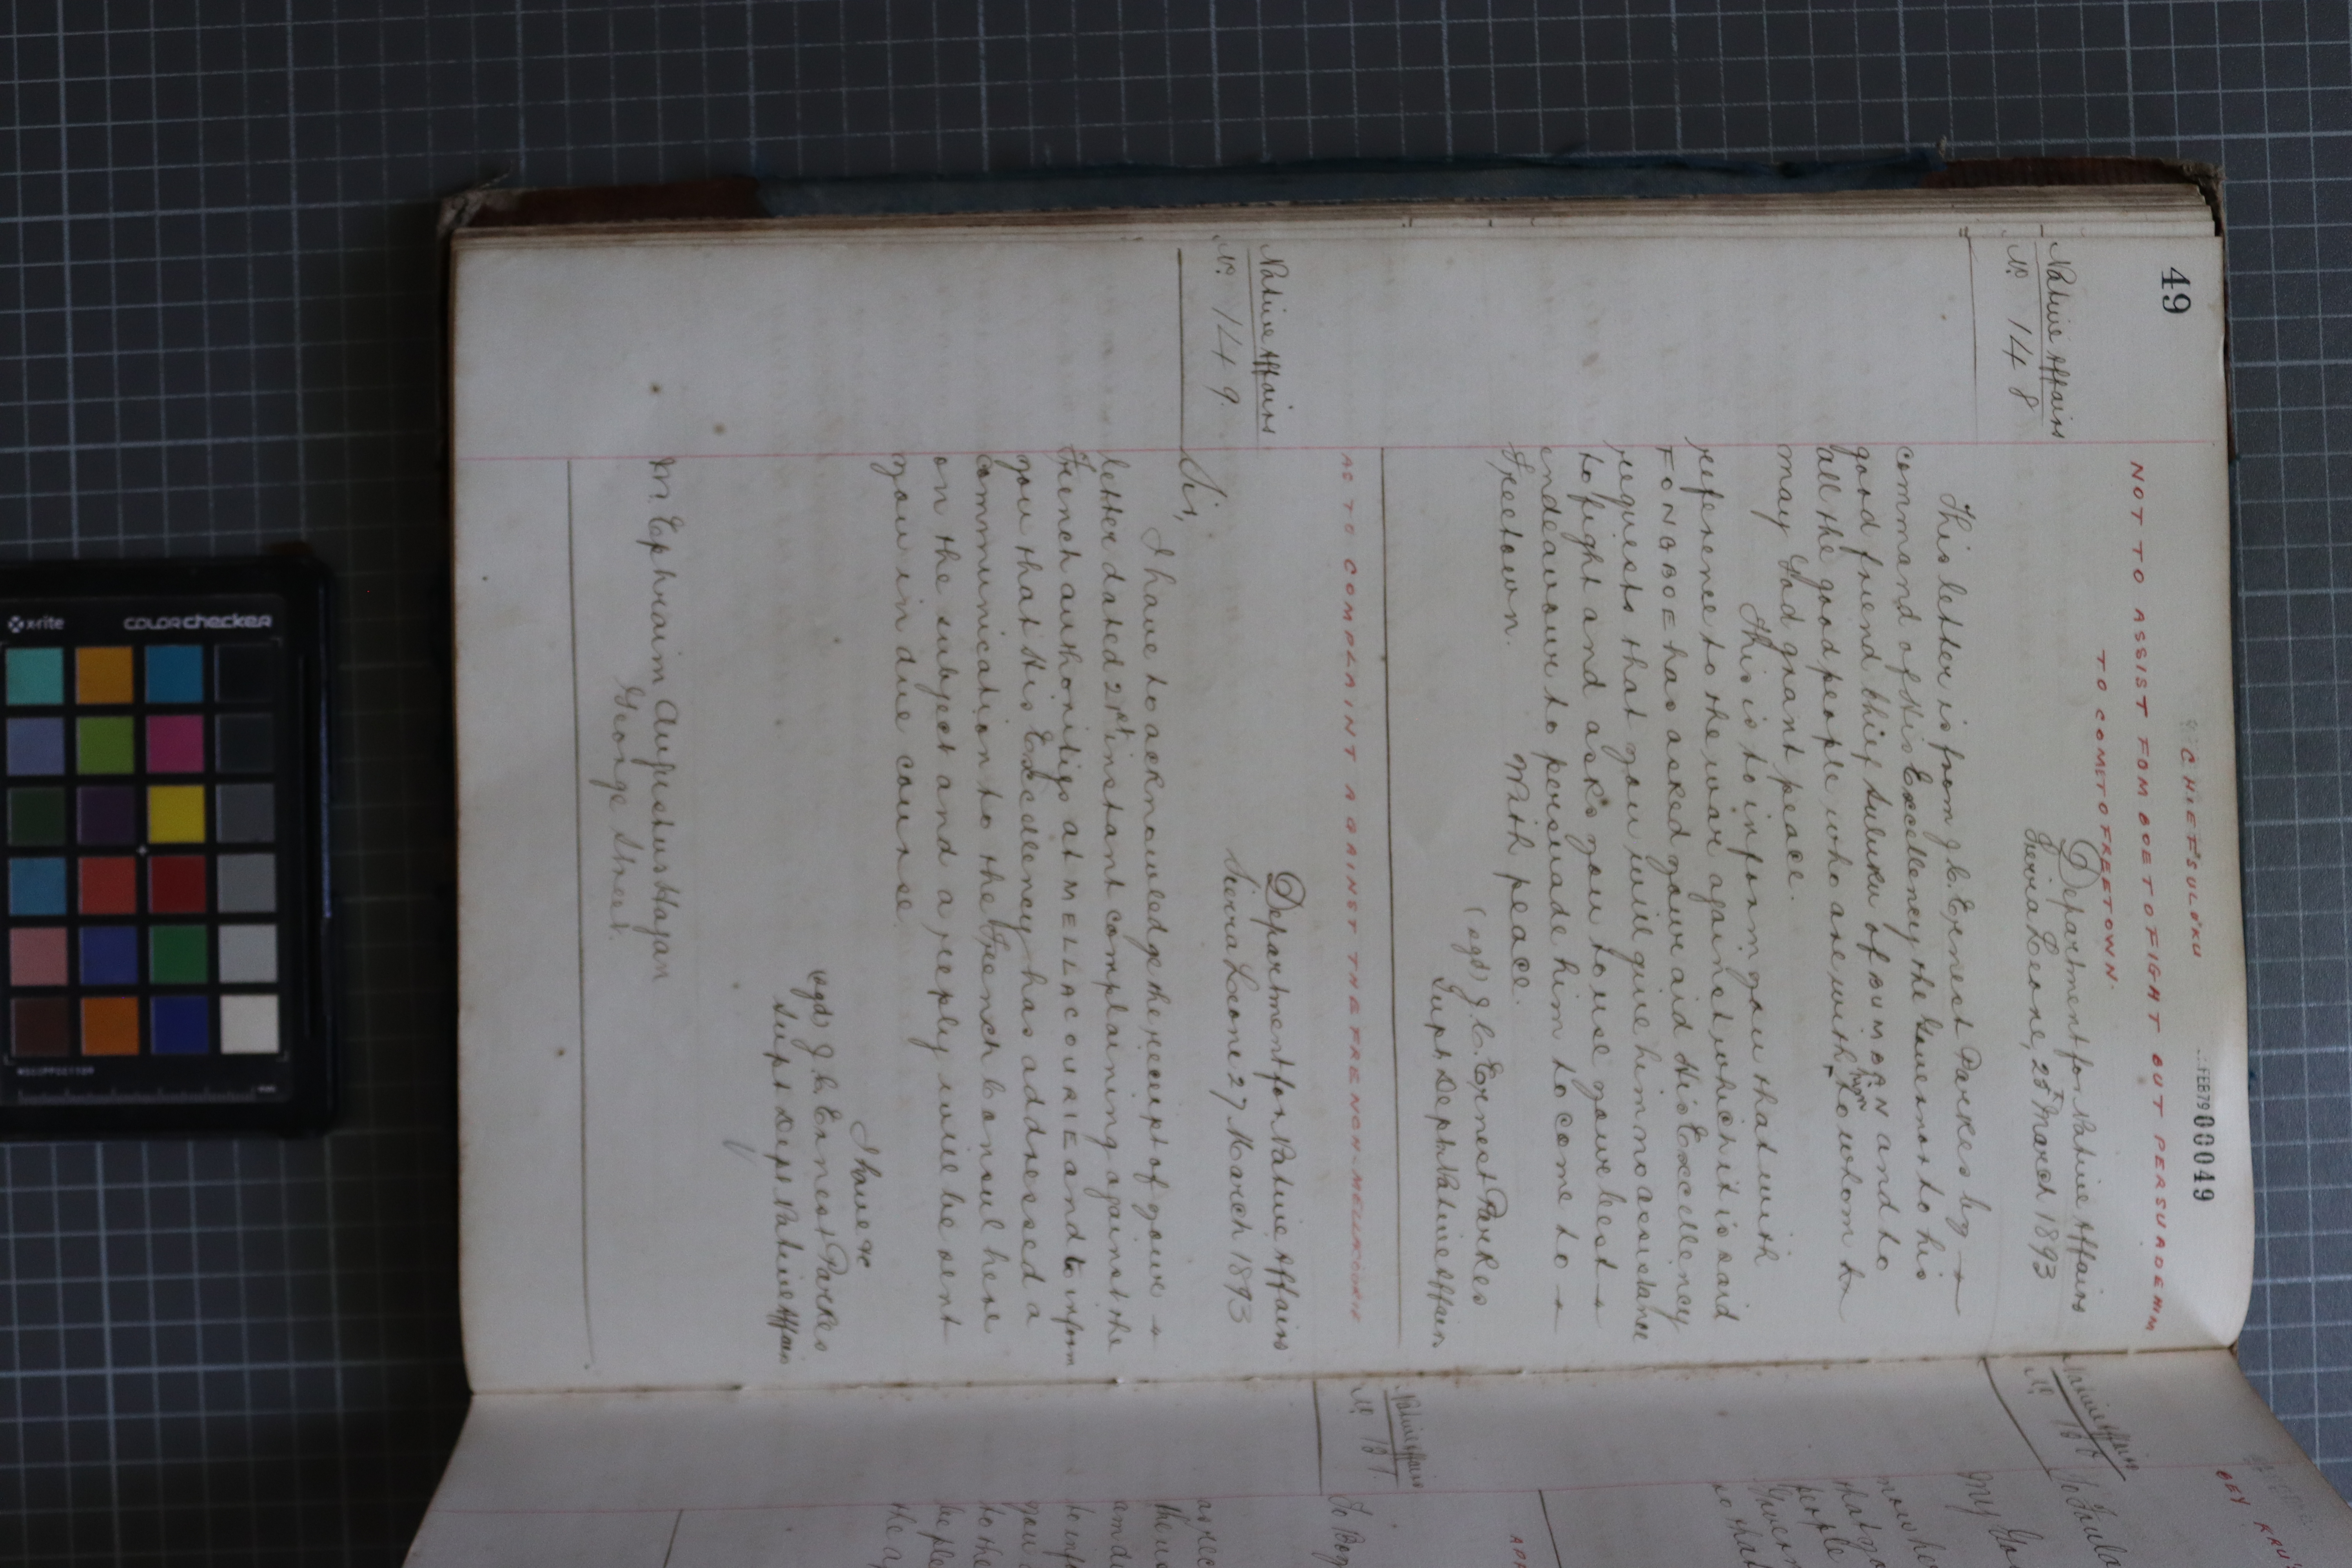 49
FEB79 00049
CHIEF SULUKU
NOT TO ASSIST FOMBOE TO FIGHT BUT PERSUADE HIM
TO COME TO FREETOWN.
Native Affairs
No. 148
Department for Native Affairs
Sierra Leone, 25th March 1893
This letter is from J. C. Ernest Parkes by
command of His Excellency the Governor to his
good friend Chief Suluku of BUMBAN and to
all the good people who are with him to whom
may God grant peace.
This is to inform you that with
reference to the war against which it is said
FONBBOE has asked your aid His Excellency
requests that you will give him no assistance
to fight and asks you to use your best
endeavour to persuade him to come to
Freetown.
With peace.
(sgd) J. C. Ernest Parkes
Supt. Dept. Native Affairs
AS TO COMPLAINT AGAINST THE FRENCH - MELLICOURIE
Native Affairs
No. 149.
Department for Native Affairs
Sierra Leone 27 March 1893
Sir,
I have to acknowledge the receipt of your
letter dated 21st instant complaining against the
French authorities at MELLACOURIE and to inform
you that His Excellency has addressed a
communication to the French Consul here
on the subject and a reply will be sent
you in due course.
I have &c
(sgd) J. C. Ernest Parkes
Supt Dept Native Affairs
Mr. Ephraim Augustus Hagan
George Street.
Native Affairs
Native Affairs
x-rite
colorchecker